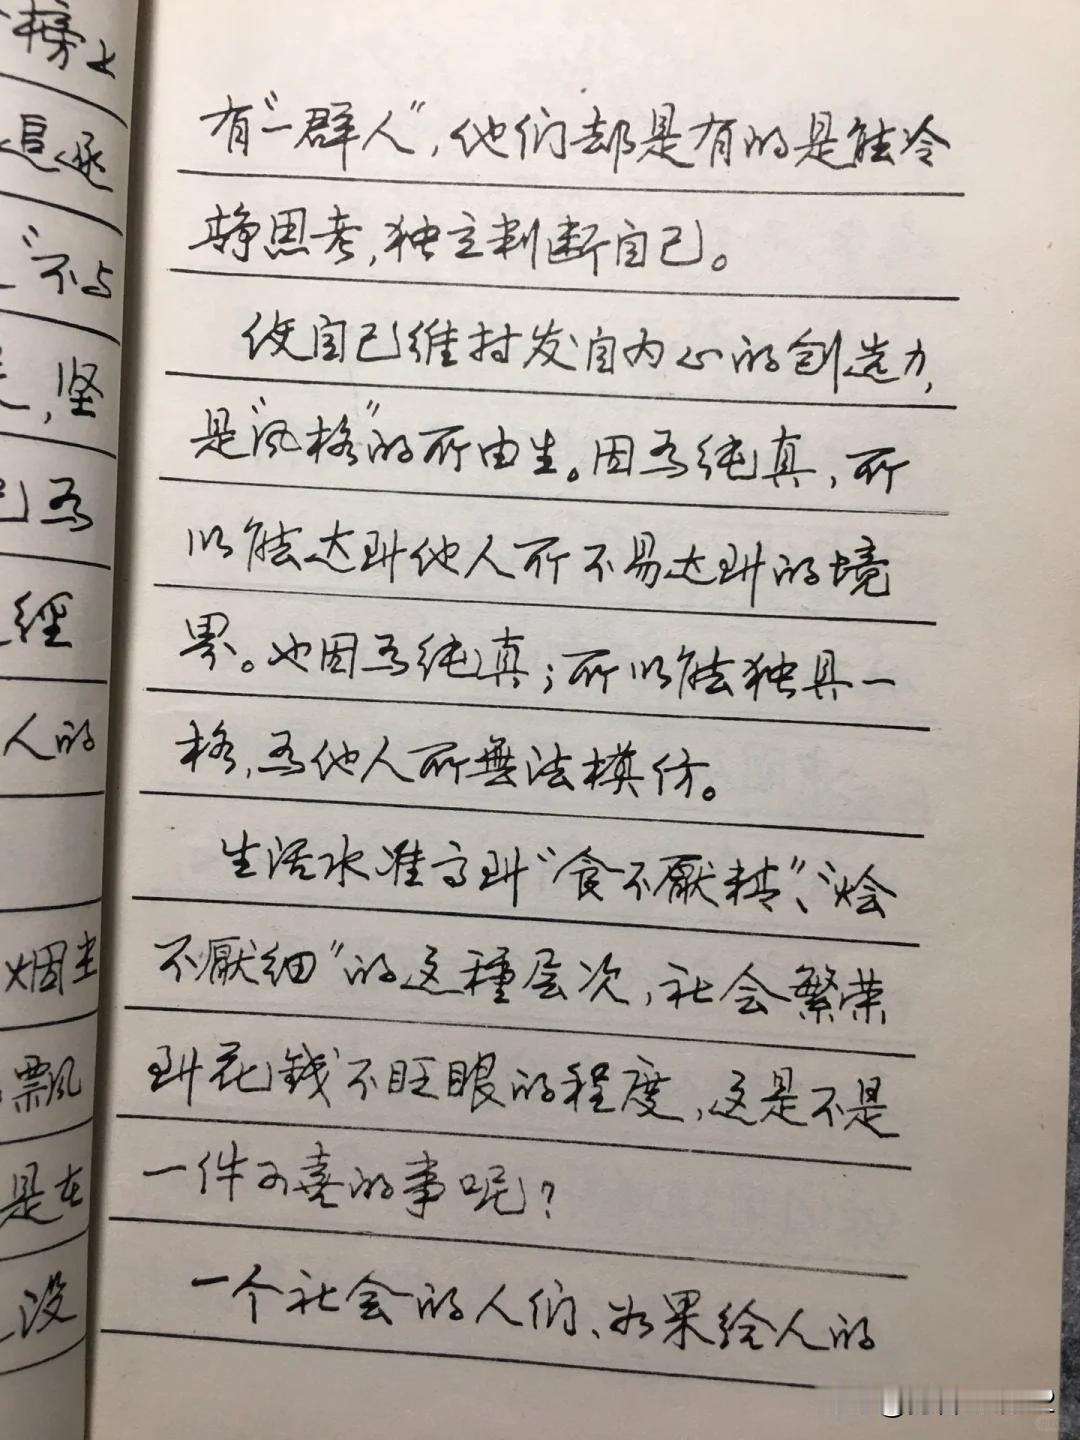 榜上
追逐
“不与
，坚
己為
经
人的
烟尘
飄
是在
没
有“一群人”，他们却是有的是能冷
静思考，独立判断自己。
使自己维持发自内心的创造力，
是“风格”的所由生。因為纯真，所
以能达到他人所不易达到的境
界。也因為纯真；所以能独具一
格，為他人所無法模仿。
生活水准高到“食不厭精”、“烩
不厭细”的这種层次，社会繁荣
到花錢不眨眼的程度，这是不是
一件可喜的事呢？
一个社会的人们、如果给人的